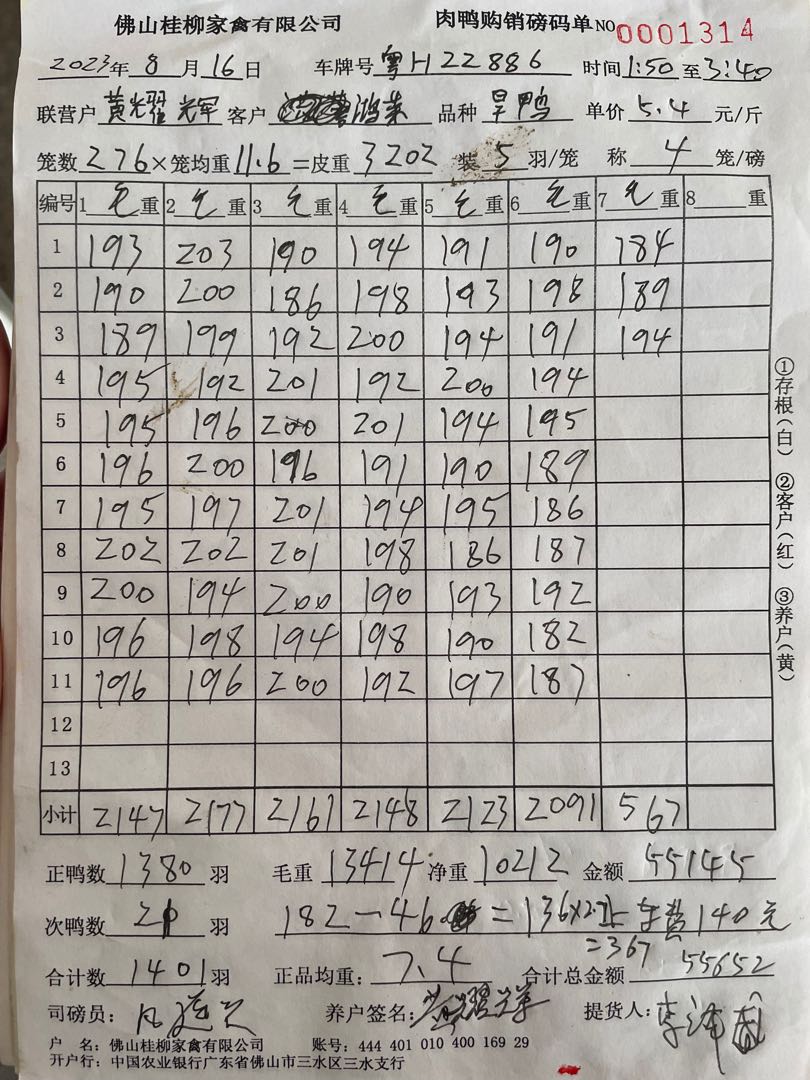 佛山桂柳家禽有限公司 肉鸭购销磅码单 NO 0001314
2023年 8 月 16 日 车牌号 粤H22886 时间 1:50 至 3:40
联营户 黄光耀 光军 客户 鸿荣 品种 旱鸭 单价 5.4 元/斤
笼数 276 × 笼均重 11.6 = 皮重 3202 装 5 羽/笼 称 4 笼/磅
编号 1 毛 重 2 毛 重 3 毛 重 4 毛 重 5 毛 重 6 毛 重 7 毛 重 8 重
1 193 203 190 194 191 190 184
2 190 200 186 198 193 198 189
3 189 199 192 200 194 191 194
4 195 192 201 192 200 194
5 195 196 200 201 194 195
6 196 200 196 191 190 189
7 195 197 201 194 195 186
8 202 202 201 198 186 187
9 200 194 200 190 193 192
10 196 198 194 198 190 182
11 196 196 200 192 197 187
12
13
小计 2147 2177 2161 2148 2123 2091 567
正鸭数 1380 羽 毛重 13414 净重 10212 金额 55145
次鸭数 21 羽 182-46 = 136×2.7 车费 140 元
=367
合计数 1401 羽 正品均重: 7.4 合计总金额 55652
司磅员: 养户签名: 提货人:
户 名: 佛山桂柳家禽有限公司 账号: 444 401 010 400 169 29
开户行: 中国农业银行广东省佛山市三水区三水支行
①存根(白) ②客户(红) ③养户(黄)